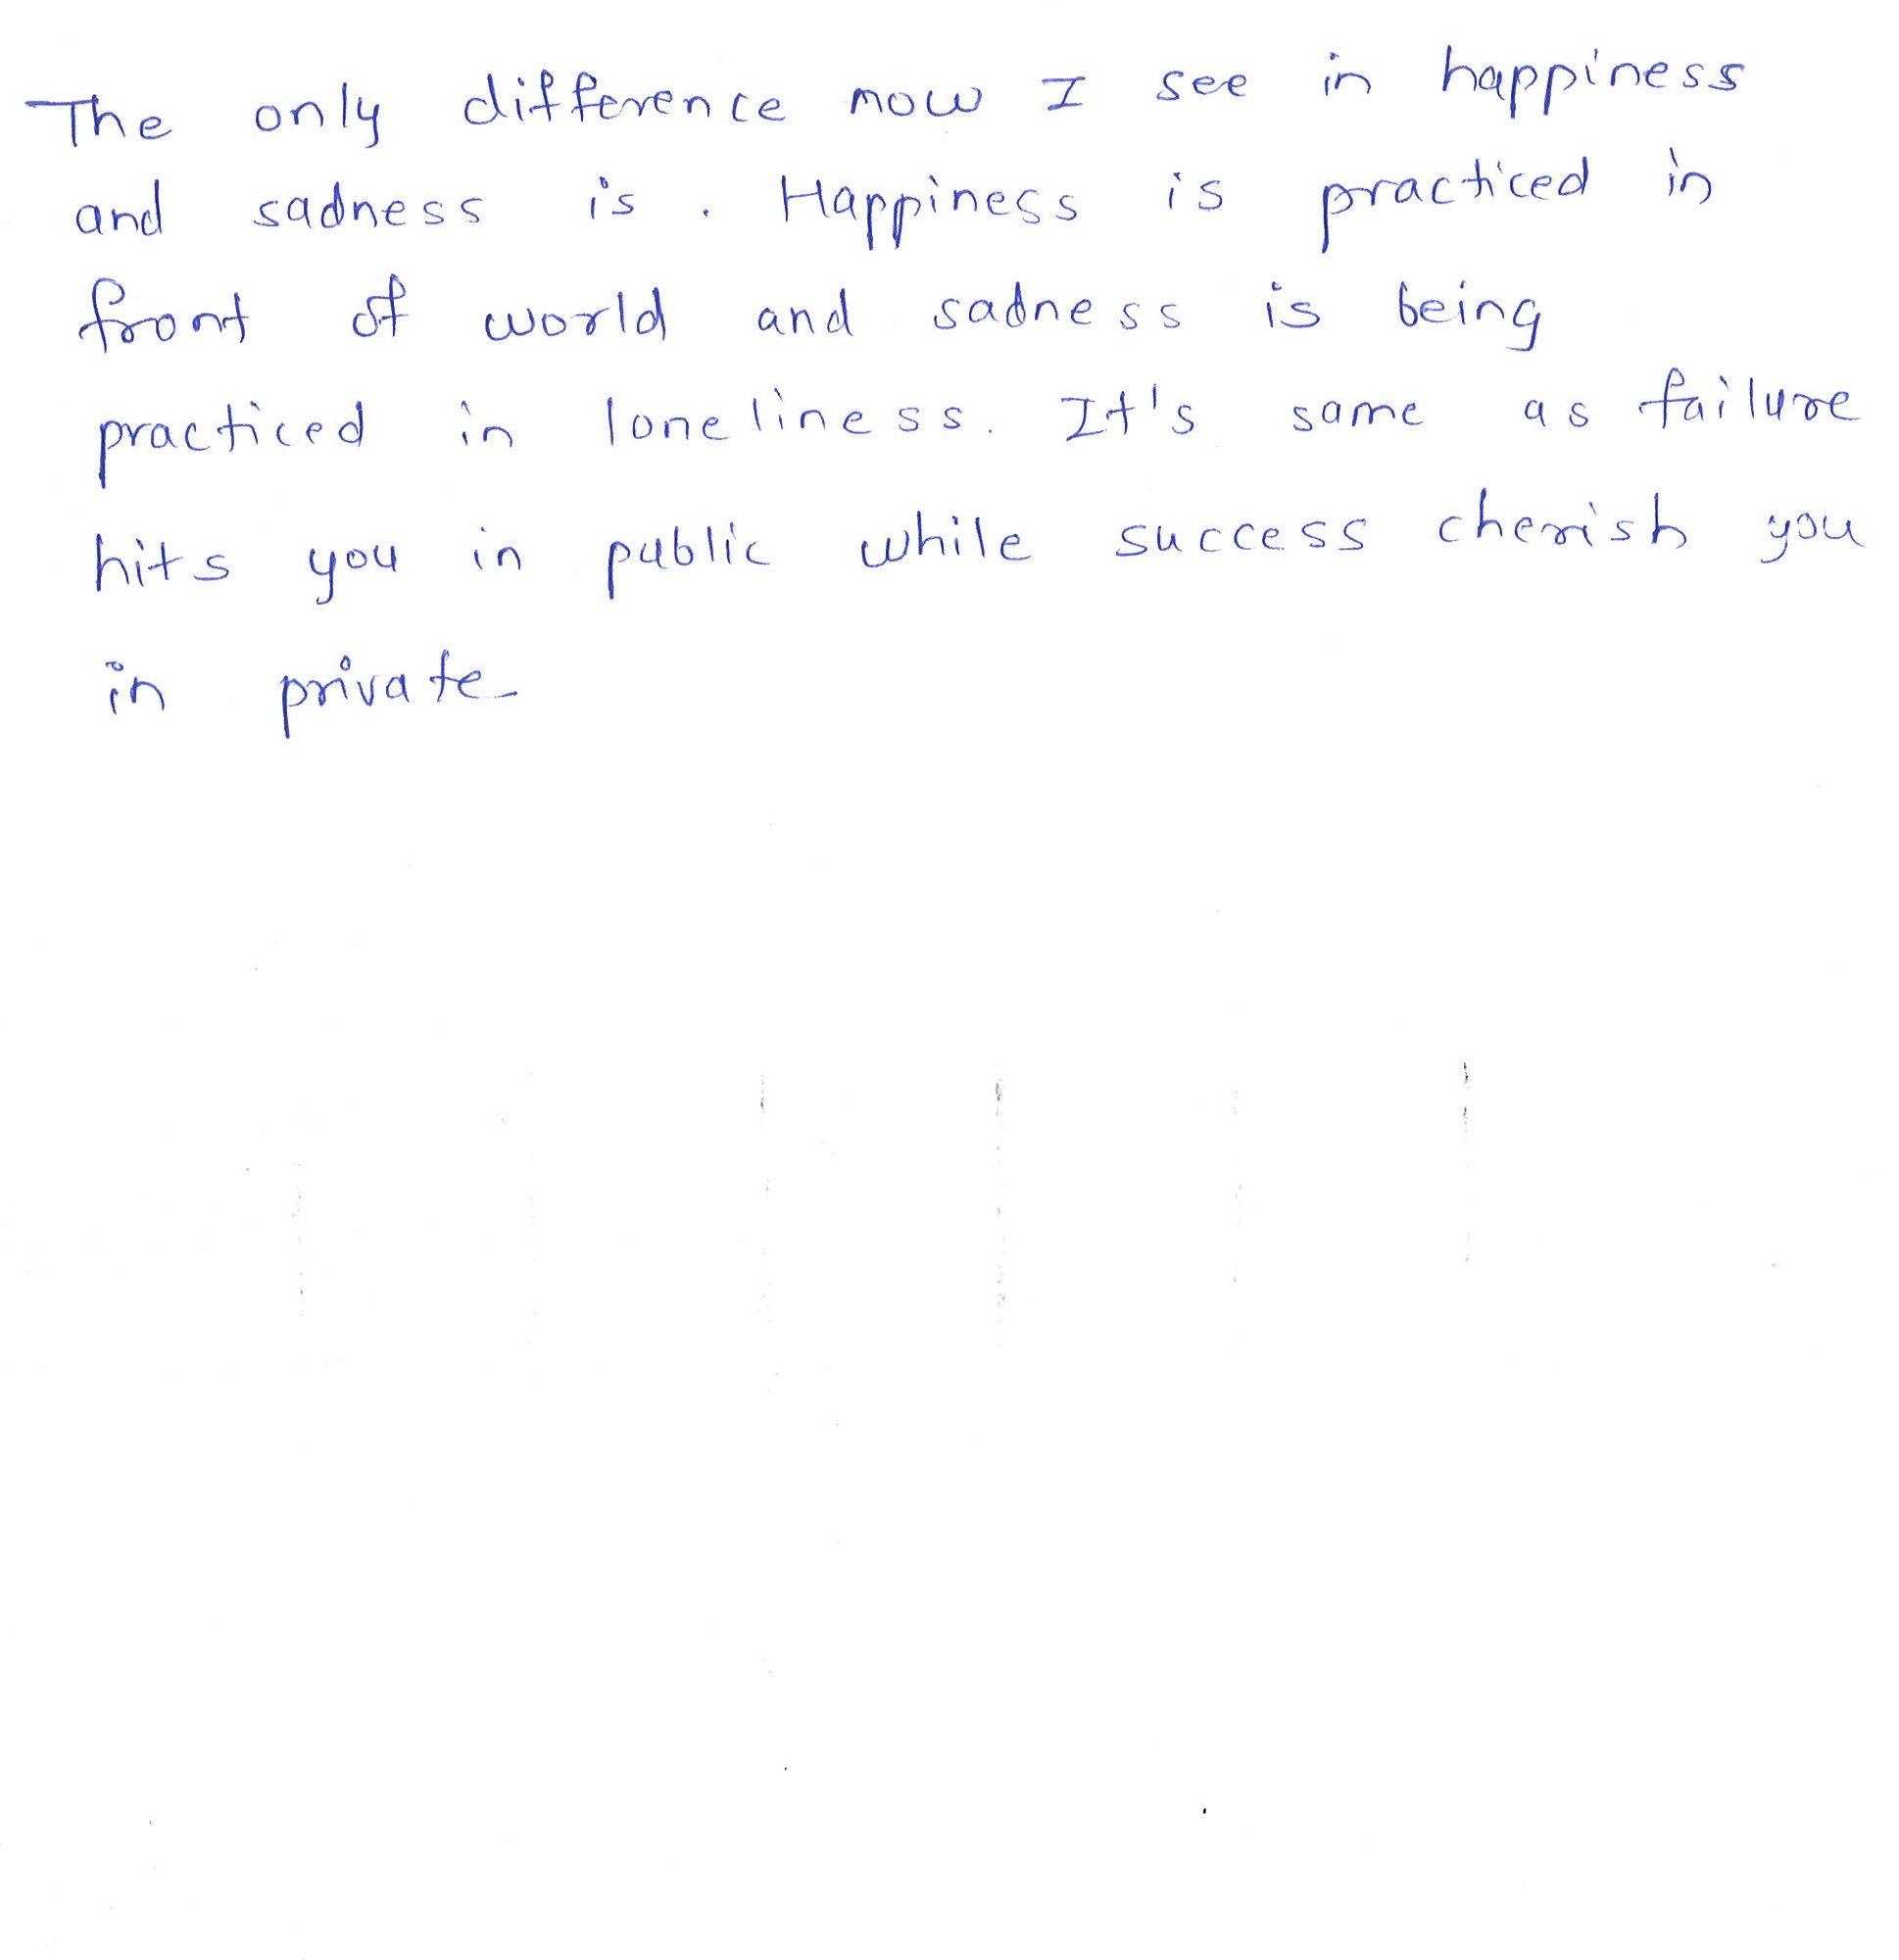 The only difference now I see in happiness
and sadness is . Happiness is practiced in
front of world and sadness is being
practiced in loneliness. It's same as failure
hits you in public while success cherish you
in private